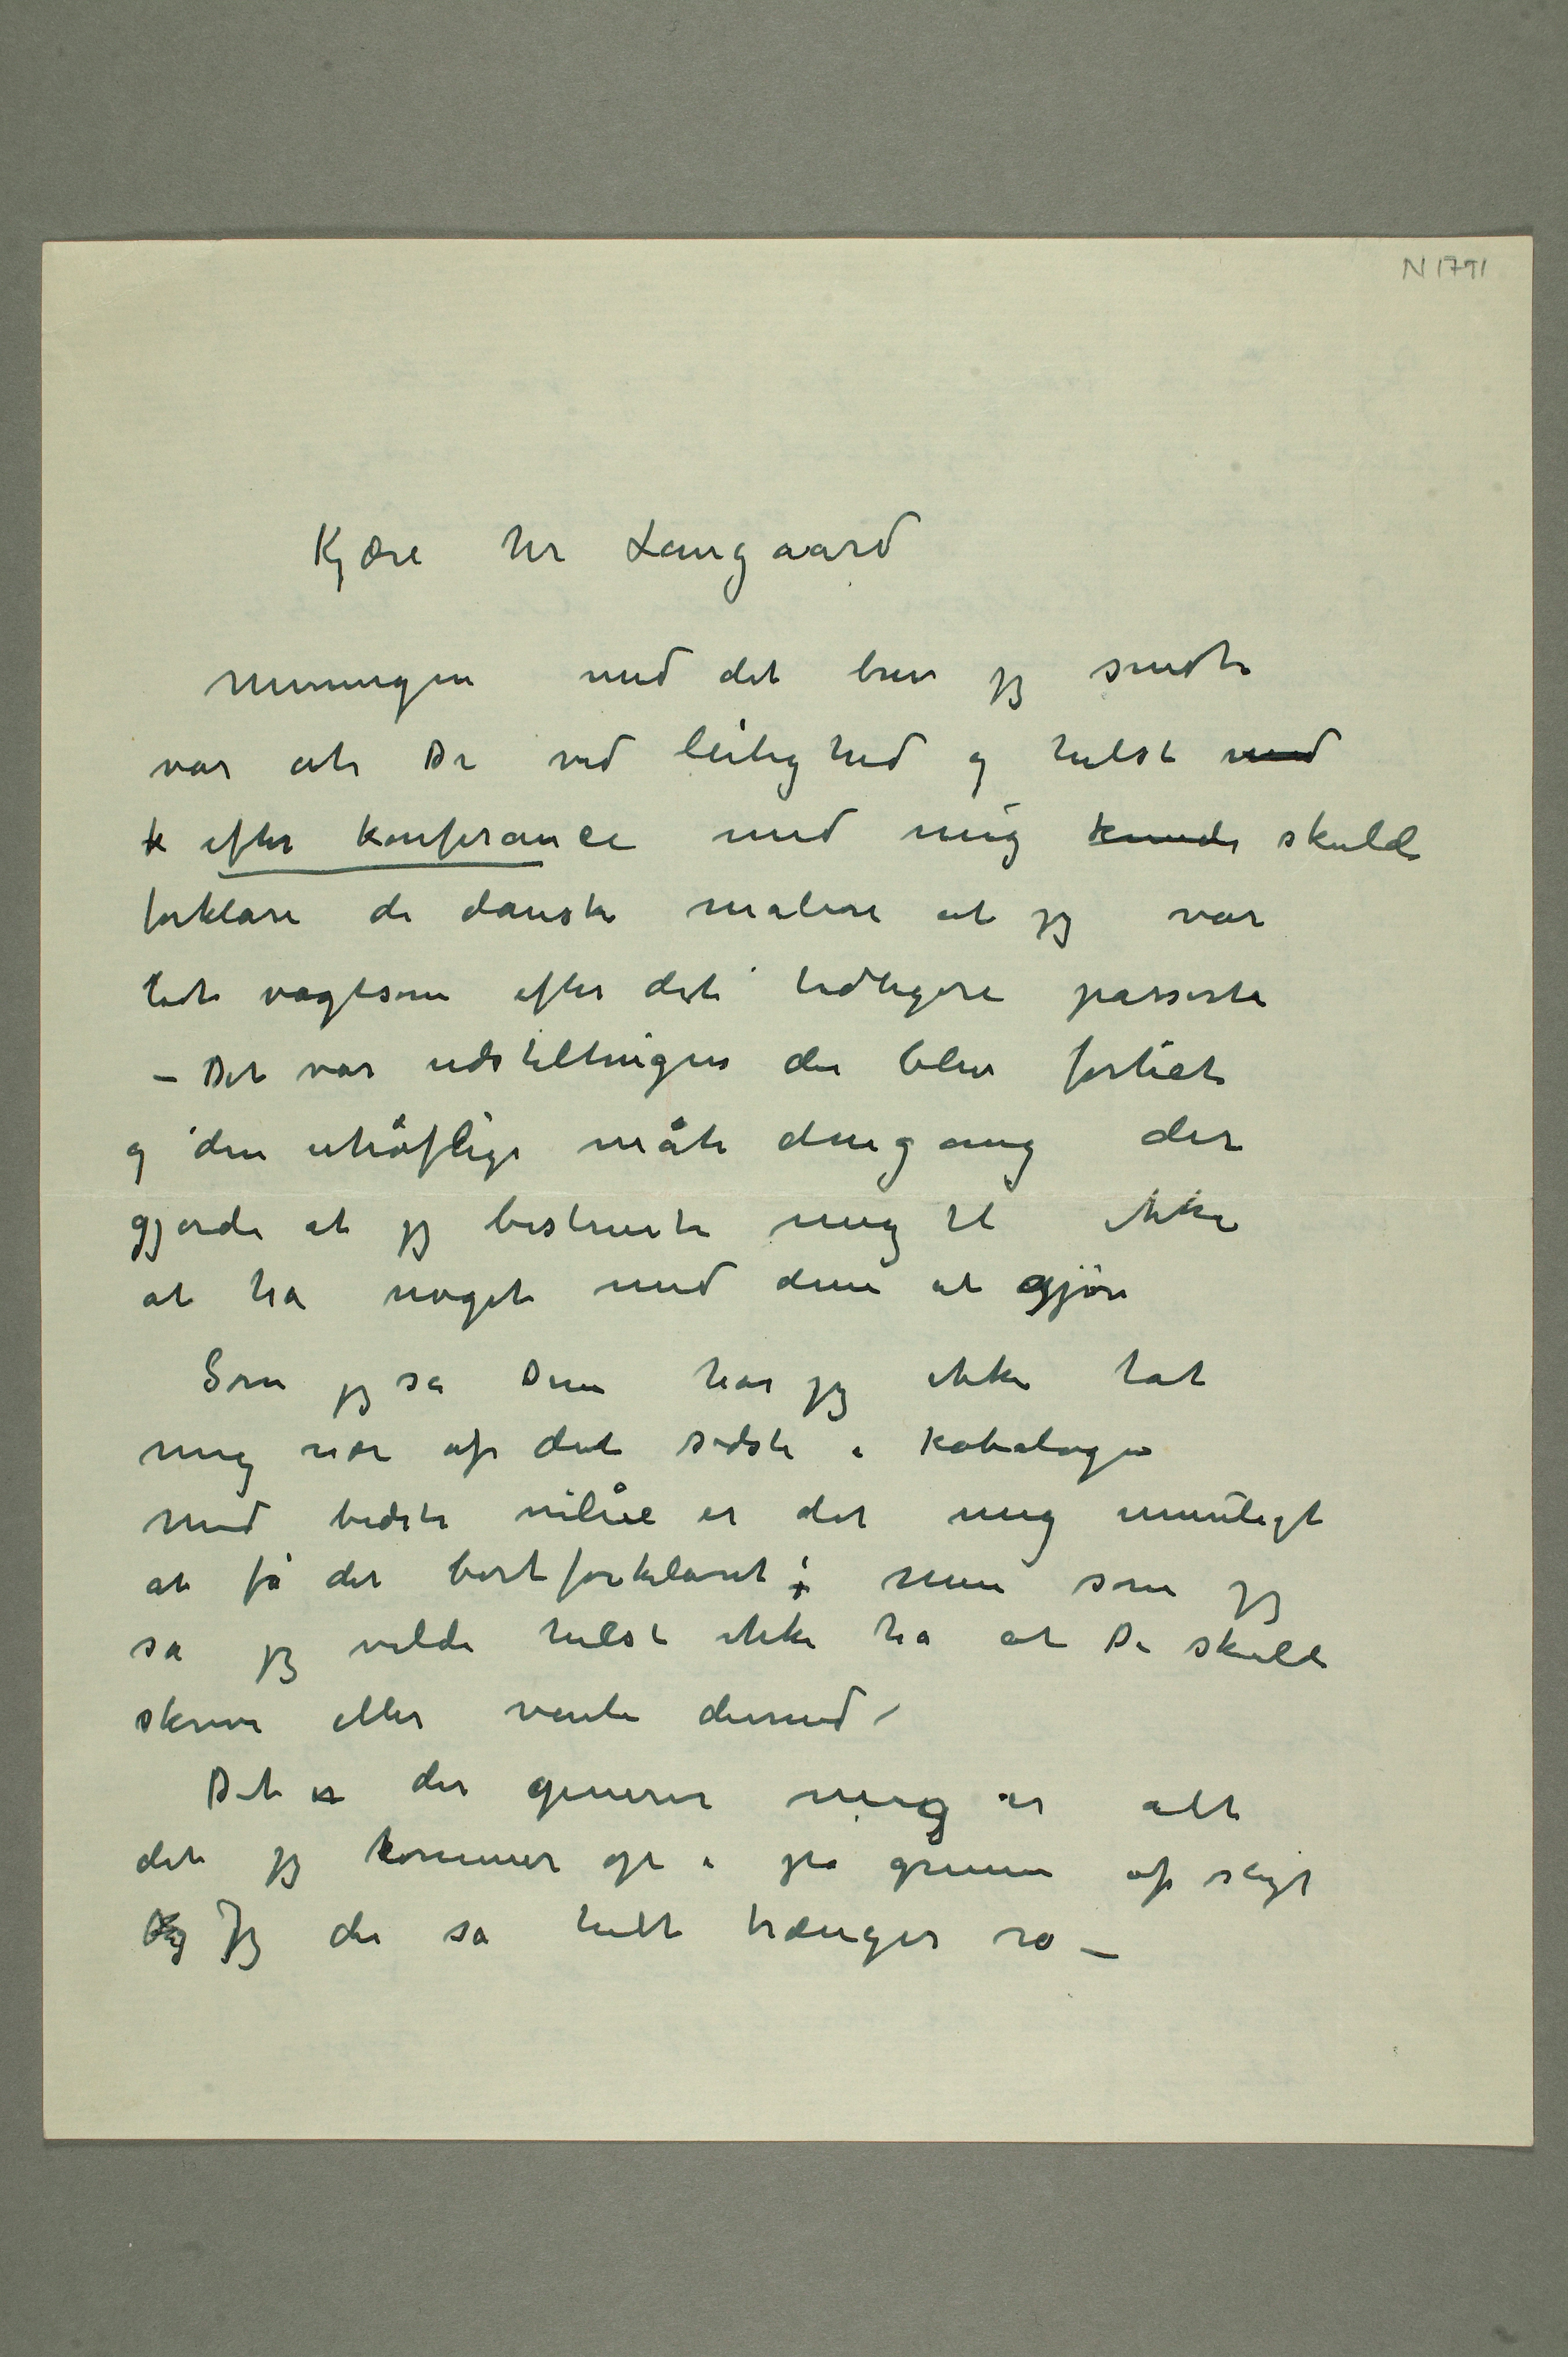 N 1791
Kjære hr Langaard
Meningen med det brev jeg sendte
var at De ved leilighed og helst med
k efter konferance med mig kunde skulde
forklare de danske malere at jeg var
lidt vagtsom efter det tidligere passerte
– Det var udstillingen der blev fortiet
og den uhöflige måte dengang der
gjorde at jeg bestemte mig til ikke
at ha noget med dem at gjöre
Som jeg sa Dem har jeg ikke tat
mig nær af det sidste i katalogen
Med bedste vilie er det mig umuligt
at få det bortforklaret; men som jeg
sa jeg vilde helst ikke ha at De skulde
skrive eller vente dermed –
Det er der generer mig er alt
det jeg kommer op i på grunn af sligt
Og Jeg der så helt trænger ro –